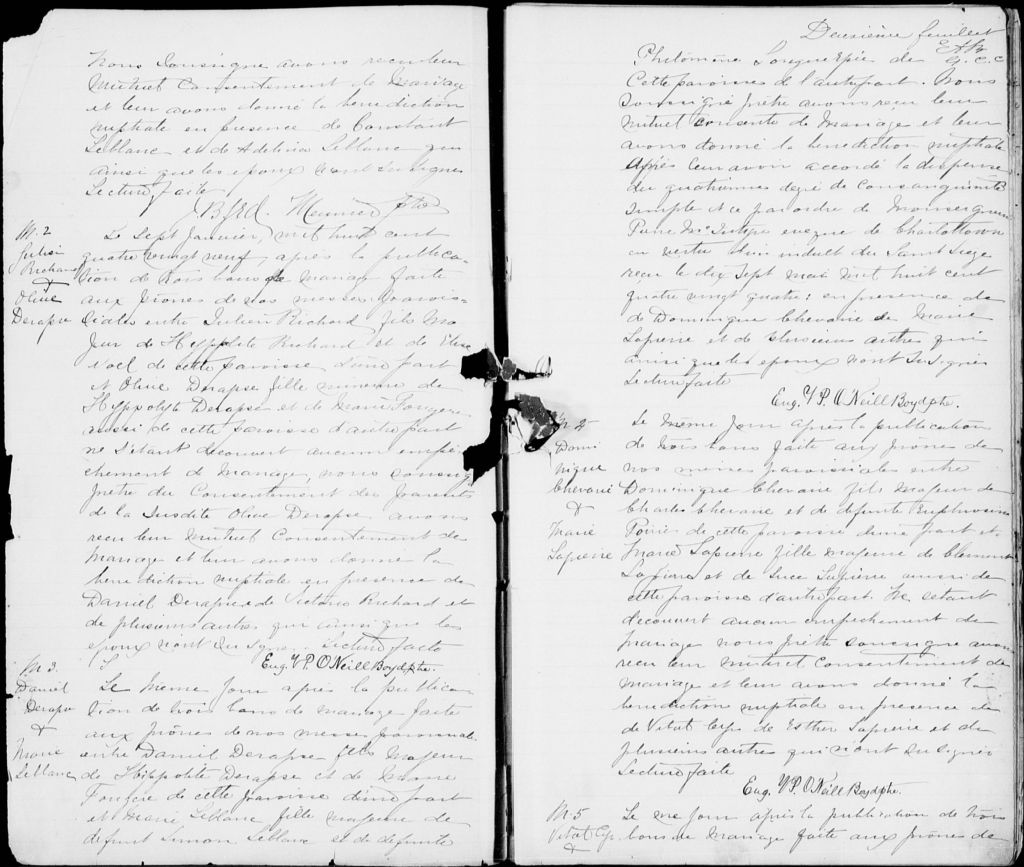 Nous Soussigné avons recu leur
Mutuel Consentement de Mariage
et leur avons donné la benediction
nuptiale en presence de Constant
Leblanc et de Adelina Leblanc qui
ainsi que les epoux n'ont su signer
Lecture faite
Meunier ptre
M. 2
Julien
Richard
&
Olive
Derapse
Le Sept Janvier, mil huit cent
quatre vingt neuf, après la publica-
tion de trois bans de mariage faite
aux prônes de nos messes parois-
siales entre Julien Richard, fils Ma-
jeur de Hyppolite Richard et de Elise
Noel de cette paroisse d'une part
et Olive Derapse fille mineure de
Hyppolyte Derapse et de Marie Fougere
aussi de cette paroisse d'autre part
ne s'étant decouvert aucun empê-
chement de mariage, nous soussigné
prêtre du Consentement des parents
de la susdite Olive Derapse avons
recu leur Mutuel Consentement de
Mariage et leur avons donné la
benediction nuptiale en presence de
Daniel Derapse & de Victoria Richard et
de plusieurs autres qui ainsi que les
epoux n'ont su signer Lecture faite
Eug. V P. O'Neill Boyd ptre.
M. 3
Daniel
Derapse
&
Marie
Leblanc
Le Meme Jour après la publica-
tion de trois bans de mariage faite
aux prônes de nos messes paroissiales
entre Daniel Derapse fils Majeur
de Hippolite Derapse et de Marie
Fougere de cette paroisse d'une part
et Marie Leblanc fille majeure de
defunt Simon Leblanc et de defunte
Deuxième feuillet
Philomène Longuepie de
G. C. C
Cette paroisse de l'autre part. Nous
Soussigné prêtre avons recu leur
mutuel consente de Mariage et leur
avons donné la benediction nuptiale
Après leur avoir accordé la dispense
du quatrième degré de Consanguinité
Simple et ce par ordre de Monseigneur
Pierre McIntyre eveque de Charlottown
en vertu d'un indult du Saint Siege
recu le dix Sept Mai mil huit cent
quatre vingt quatre: en presence de
de Dominique Chevarie de Marie
Lapierre et de plusieurs autres qui
ainsi que les epoux n'ont su signer
Lecture faite
Eug. V P. O'Neill Boyd ptre.
Domi
nique
Chevarie
&
Marie
Lapierre
Le Même Jour après la publication
de trois bans faite aux prônes de
nos messes paroissiales entre
Dominique Chevarie fils Majeur de
Charles Chevarie et de defunte Euphrosine
Poirier de cette paroisse d'une part et
Marie Lapierre fille majeure de Clement
Lapierre et de Luce Lapierre aussi de
cette paroisse d'autre part. Ne s'etant
decouvert aucun empechement de
mariage nous prêtre soussigné avons
recu leur mutuel Consentement de
Mariage et leur avons donné la
benediction nuptiale en presence de
de Vital Cyr de Esther Lapierre et de
plusieurs autres qui n'ont su signer
Lecture faite
Eug. V P. O'Neill Boyd ptre.
M. 5
Vital Cyr
&
Le me Jour après la publication de trois
bans de Mariage faite aux prônes de